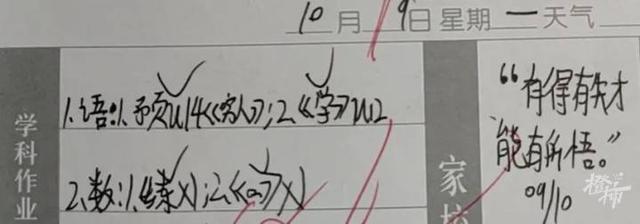 10月19日星期一天气
学科作业
1.语:1.予页U14《穷人》;2.《学》U12
2.数:1.《练》X1;2.《口》X1
家校
“有得有失才
能有所悟。”
09/10
橙柿